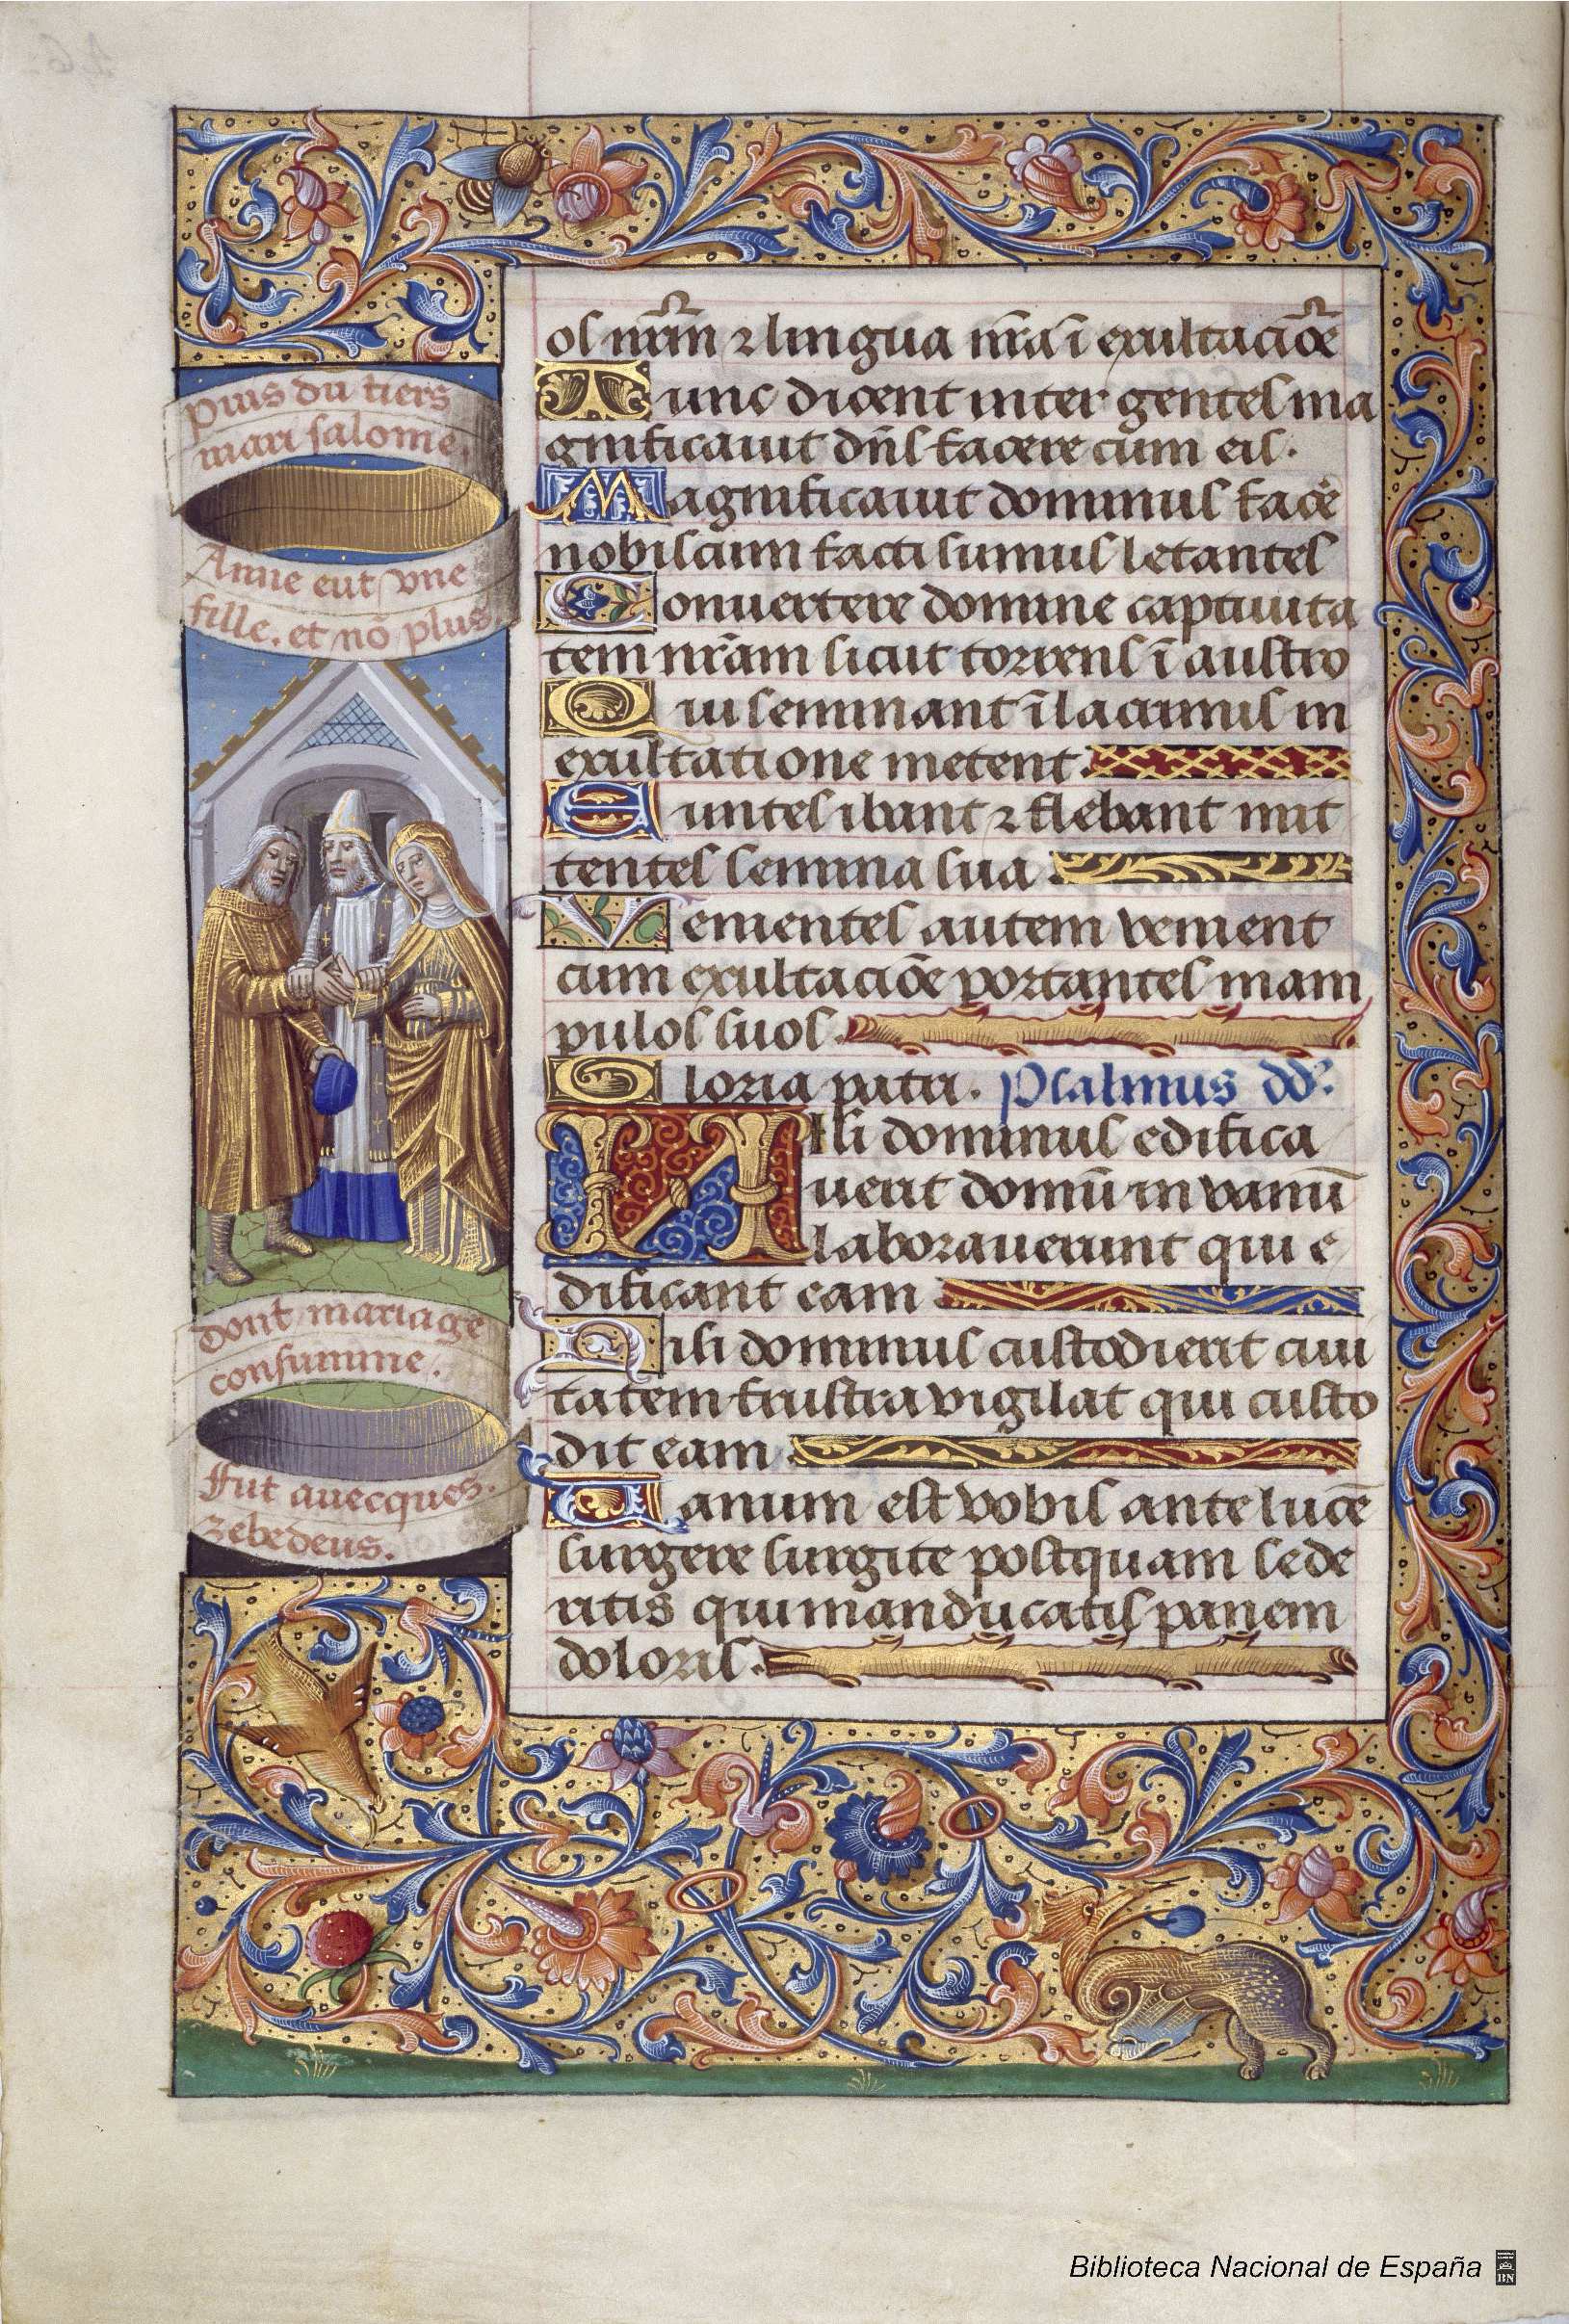 puis du tiers
mari salome.
Anne eut vne
fille. et nō plus
dont mariage
consumme.
ffut auecques.
zebedeus.
os nr̄m ⁊ lingua nr̄a ī exultaciōe
Tunc dicent inter gentes ma
gnificauit dn̄s facere cum eis.
Magnificauit dominus facẽ
nobiscum facti sumus letantes
Conuertere domine captiuita
tem nr̄am sicut torrens ī austro
Qui seminant ī lacrimis in
exultatione metent.
Euntes ibant ⁊ flebant mit
tentes semina sua.
Venientes autem venient
cum exultaciōe portantes mani
pulos suos.
Gloria patri. Psalmus dd.
Nisi dominus edifica
uerit domū in vanū
laborauerunt qui e
dificant eam
Nisi dominus custodierit ciui
tatem frustra vigilat qui custo
dit eam.
Vanum est vobis ante lucē
surgere surgite postquam sede
ritis qui manducatis panem
doloris.
Biblioteca Nacional de España
BN